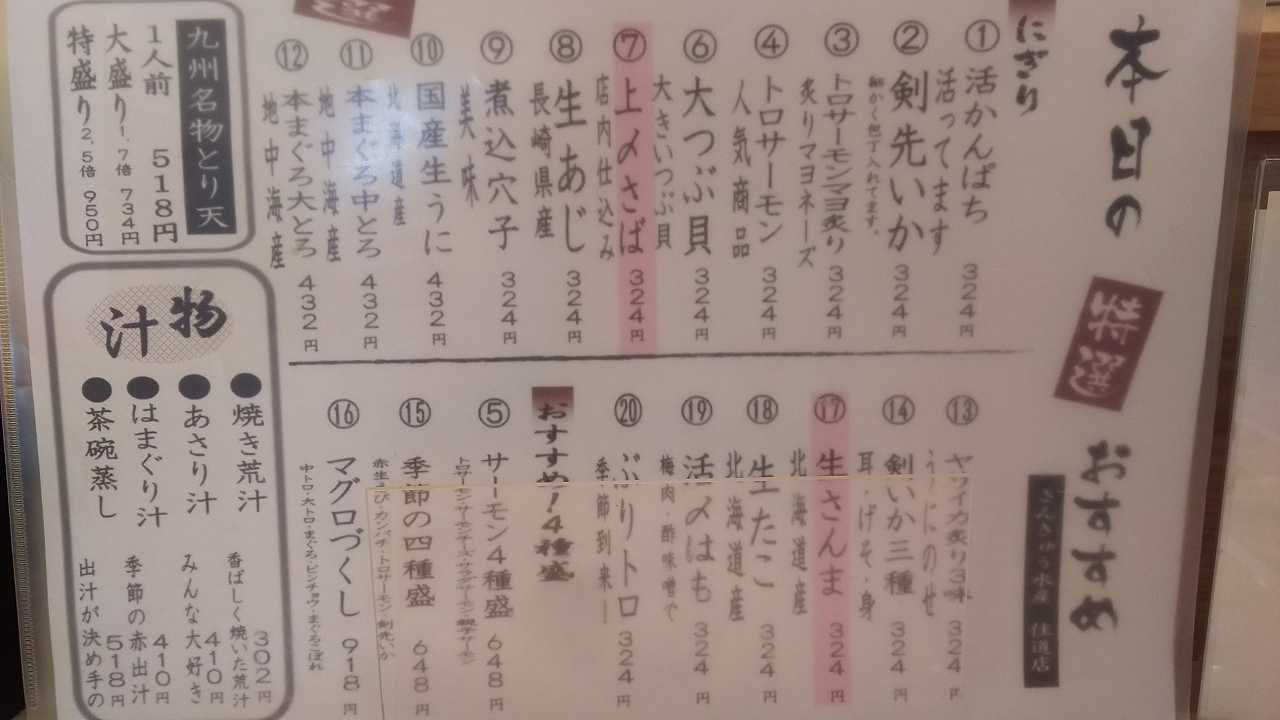 本日の
特選
おすすめ
ぎんぎゅう水産 住道店
にぎり
① 活かんぱち 324円
活ってます
② 剣先いか 324円
細かく包丁入れてます。
③ トロサーモンマヨ炙り 324円
炙りマヨネーズ
④ トロサーモン 324円
人気商品
⑥ 大つぶ貝 324円
大きいつぶ貝
⑦ 上〆さば 324円
店内仕込み
⑧ 生あじ 324円
長崎県産
⑨ 煮込穴子 324円
美味
⑩ 国産生うに 432円
北海道産
⑪ 本まぐろ中とろ 432円
地中海産
⑫ 本まぐろ大とろ 432円
地中海産
⑬ ヤリイカ炙り3味 324円
うにのせ
⑭ 剣いか三種 324円
耳・げそ・身
⑰ 生さんま 324円
北海道産
⑱ 生たこ 324円
北海道産
⑲ 活〆はも 324円
梅肉・酢味噌で
⑳ ぶりトロ 324円
季節到来!
おすすめ!4種盛
⑤ サーモン4種盛 648円
⑮ 季節の四種盛 648円
赤生えび・カンパチ・トロサーモン・剣先いか
⑯ マグロづくし 918円
中トロ・大トロ・まぐろ・ビンチョウ・まぐろこぼれ
九州名物とり天
1人前 518円
大盛り 1,7倍 734円
特盛り 2,5倍 950円
汁物
●焼き荒汁 302円
香ばしく焼いた荒汁
●あさり汁 410円
みんな大好き
●はまぐり汁 410円
季節の赤出汁
●茶碗蒸し 518円
出汁が決め手の